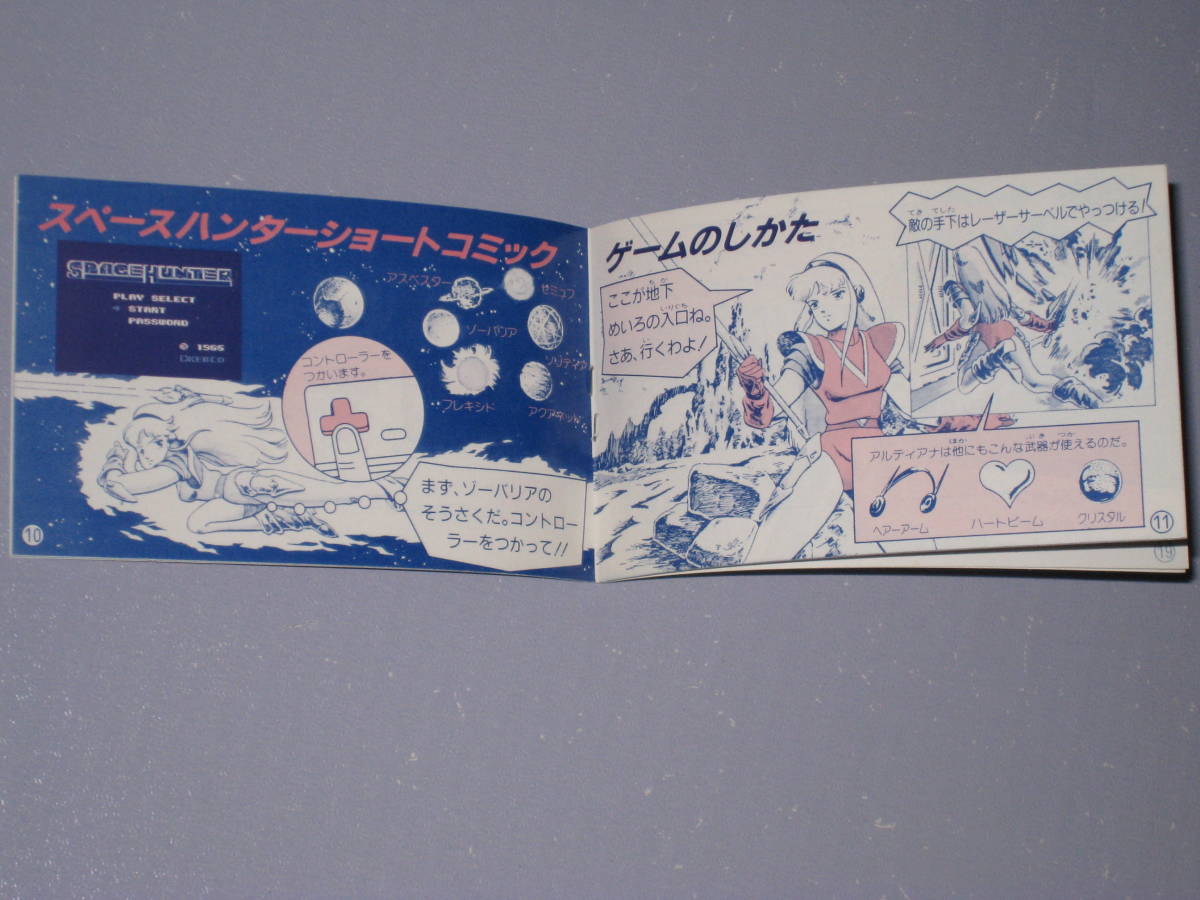 スペースハンターショートコミック
SPACE HUNTER
PLAY SELECT
START
PASSWORD
© 1986
アスベスター
ゼミュフ
ゾーバリア
ソリティア
フレキシド
コントローラーを
つかいます。
まず、ゾーバリアの
そうさくだ。コントロー
ラーをつかって!!
10
ゲームのしかた
ここが地下
めいろの入口ね。
さあ、行くわよ!
敵の手下はレーザーサーベルでやっつける!
アルティアナは他にもこんな武器が使えるのだ。
ヘアーアーム
ハートビーム
クリスタル
11
19